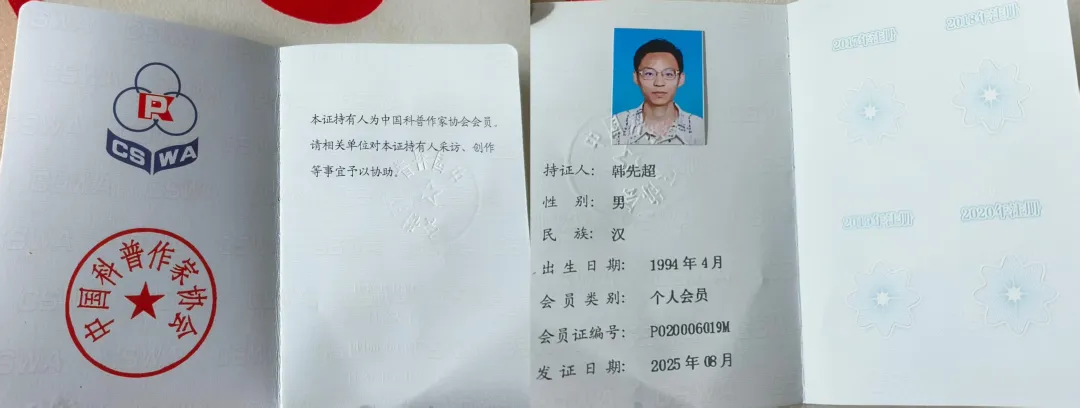 P
CSWA
中国科普作家协会
本证持有人为中国科普作家协会会员，
请相关单位对本证持有人采访、创作
等事宜予以协助。
持证人：韩先超
性 别：男
民 族：汉
出生日期：1994 年 4月
会员类别：个人会员
会员证编号：PO20006019M
发证日期：2025 年 08 月
2017年注册
2018年注册
2019年注册
2020年注册